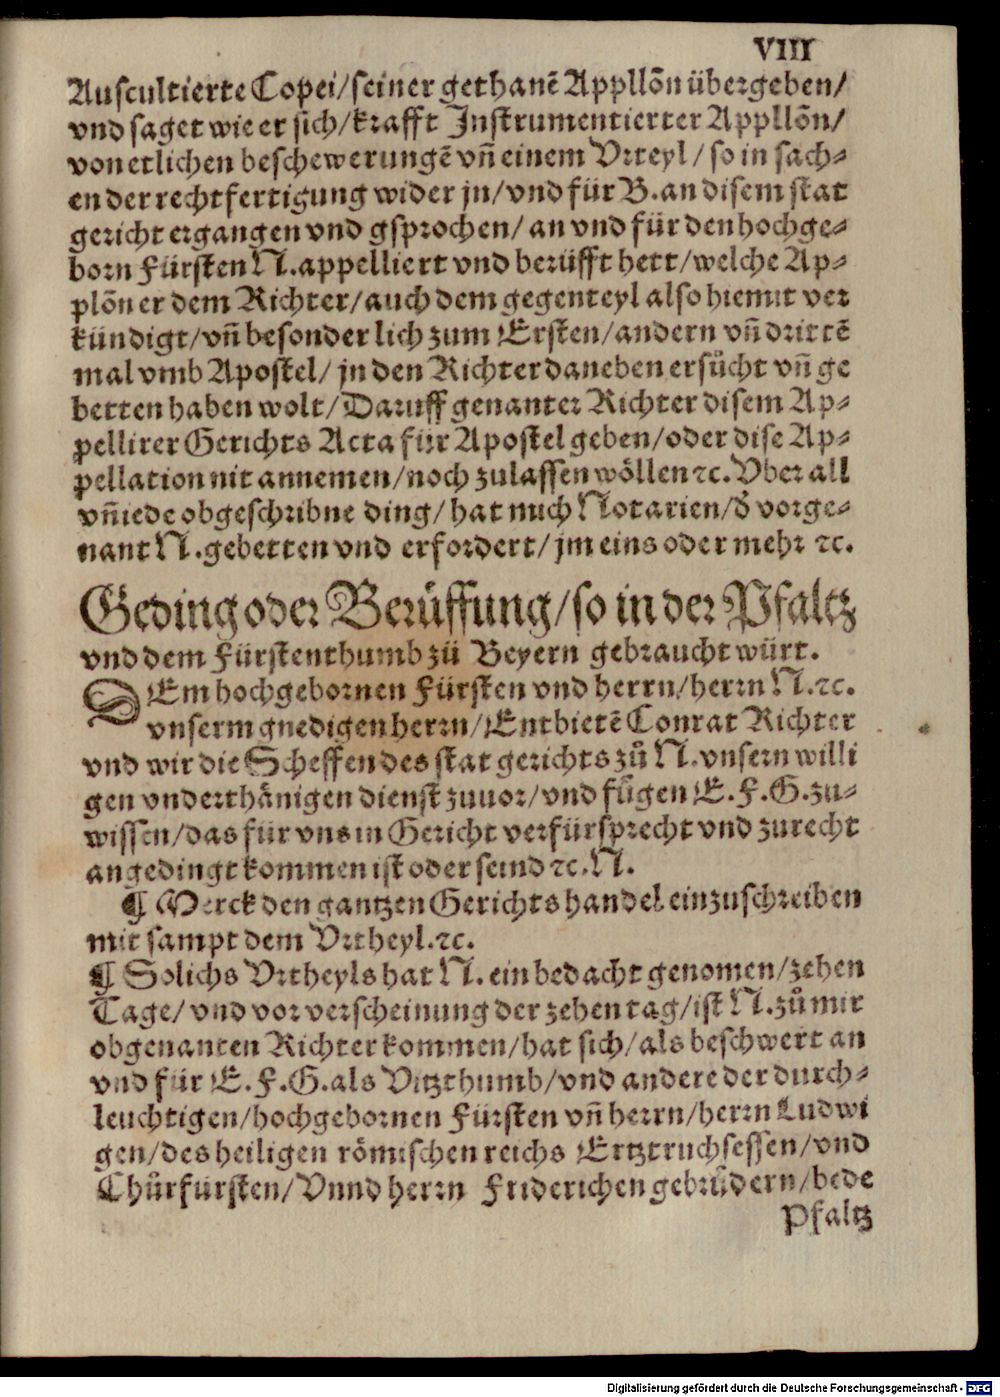 VIII
Auscultierte Copei/seiner gethanẽ Appllõn übergeben/
vnd saget wie er sich/krafft Instrumentierter Appllõn/
von etlichen beschewerungẽ vñ einem Vrteyl/so in sach-
en der rechtfertigung wider jn/vnd für B.an disem stat
gericht ergangen vnd gsprochen/an vnd für den hochge-
born Fürsten N.appelliert vnd berüfft hett/welche Ap-
plõn er dem Richter/auch dem gegenteyl also hiemit ver
kündigt/vñ besonder lich zum Ersten/andern vñ drittẽ
mal vmb Apostel/jn den Richter daneben ersůcht vñ ge
betten haben wolt/Daruff genanter Richter disem Ap-
pellirer Gerichts Acta für Apostel geben/oder dise Ap-
pellation nit annemen/noch zulassen wöllen ꝛc.Vber all
vñ iede obgeschribne ding/hat mich Notarien/đ vorge-
nant N.gebetten vnd erfordert/jm eins oder mehr ꝛc.
Geding oder Berüffung/so in der Pfaltz
vnd dem Fürstenthumb zü Beyern gebraucht würt.
DEm hochgebornen Fürsten vnd herrn/herrn N.ꝛc.
vnserm gnedigen herrn/Entbietẽ Conrat Richter
vnd wir die Scheffen des stat gerichts zů N.vnsern willi
gen vnderthänigen dienst zuuor/vnd fůgen E.F.G.zu-
wissen/das für vns in Gericht verfürsprecht vnd zurecht
angedingt kommen ist oder seind ꝛc.N.
¶ Merck den gantzen Gerichts handel einzuschreiben
mit sampt dem Vrtheyl.ꝛc.
¶ Solichs Vrtheyls hat N.ein bedacht genomen/zehen
Tage/vnd vor verscheinung der zehen tag/ist N.zů mir
obgenanten Richter kommen/hat sich/als beschwert an
vnd für E.F.G.als Vitzthumb/vnd andere der durch-
leuchtigen/hochgebornen Fürsten vñ herrn/herrn Ludwi
gen/des heiligen römischen reichs Ertztruchsessen/vnd
Chůrfürsten/Vnnd herrn Friderichen gebrůdern/bede
Pfaltz
Digitalisierung gefördert durch die Deutsche Forschungsgemeinschaft - DFG